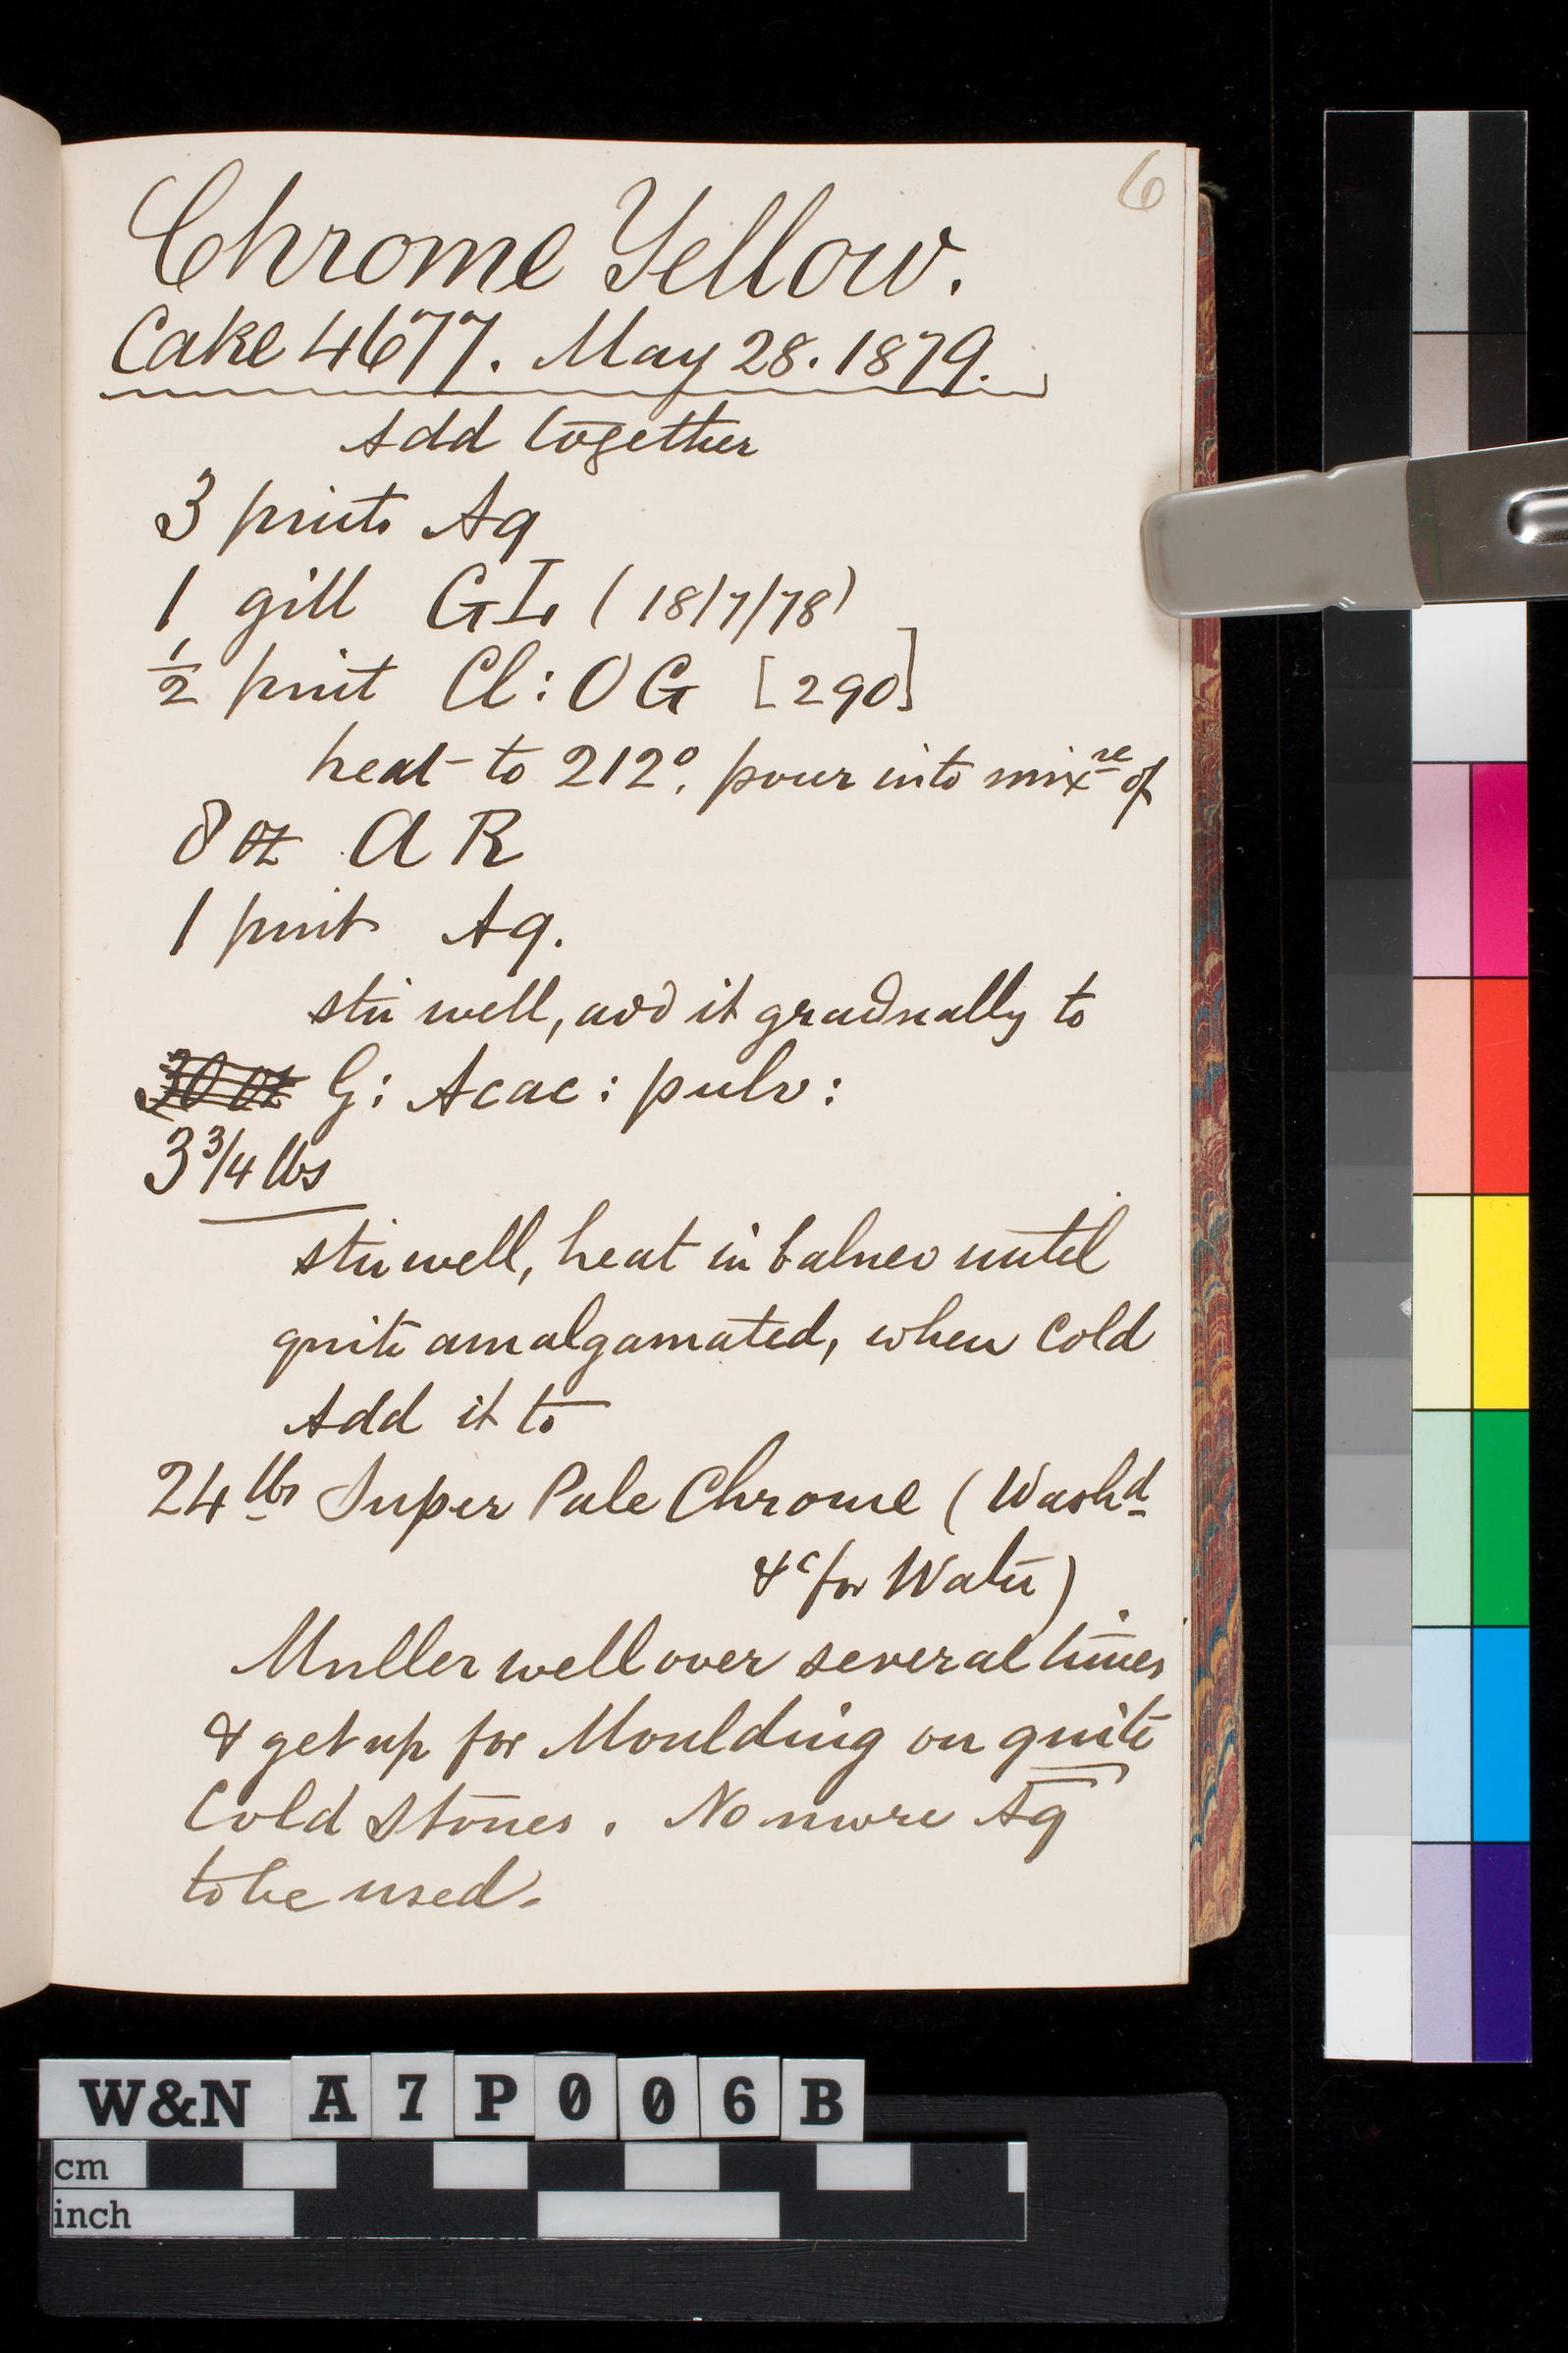 6
Chrome Yellow.
Cake 4677. May 28. 1879.
Add together
3 pints Aq
1 gill GL (18/7/78)
½ pint Cl: OG [290]
heat to 212°. pour into mixre of
8 oz AR
1 pint Aq.
stir well, add it gradually to
30 oz G: Acac: pulv:
3 3/4 lbs
stir well, heat in balneo until
quite amalgamated, when cold
Add it to
24 lbs Super Pale Chrome (Washd
&c for Water)
Muller well over several times
& get up for Moulding on quite
Cold Stones. No more Aq
to be used.
W&N A7P006B
cm
inch